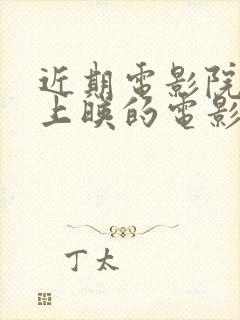 近期電影院
上映的電影
丁太